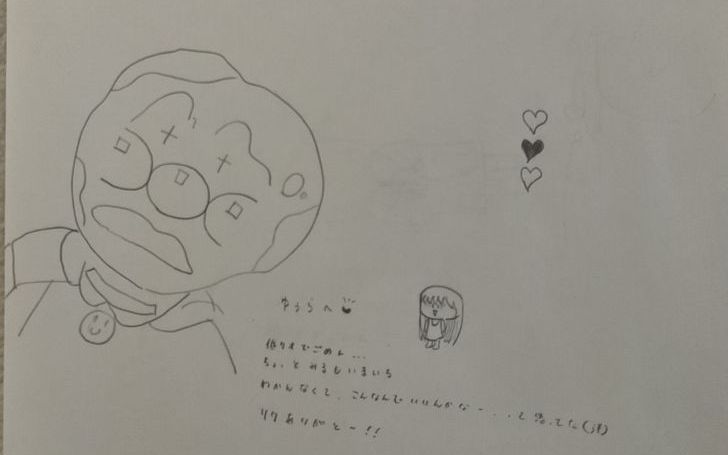 ゆうらへ
低クオでごめん...
ちょっとみるもいまいち
わかんなくて、こんなんでいいんかなー...と思ってた(汗)
リクありがとー!!